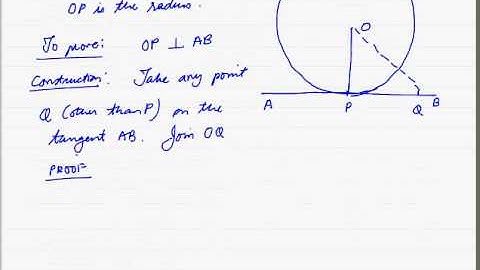 OP is the radius.
To prove: OP ⊥ AB
Construction: Take any point
Q (other than P) on the
tangent AB. Join OQ
PROOF
O
A P Q B